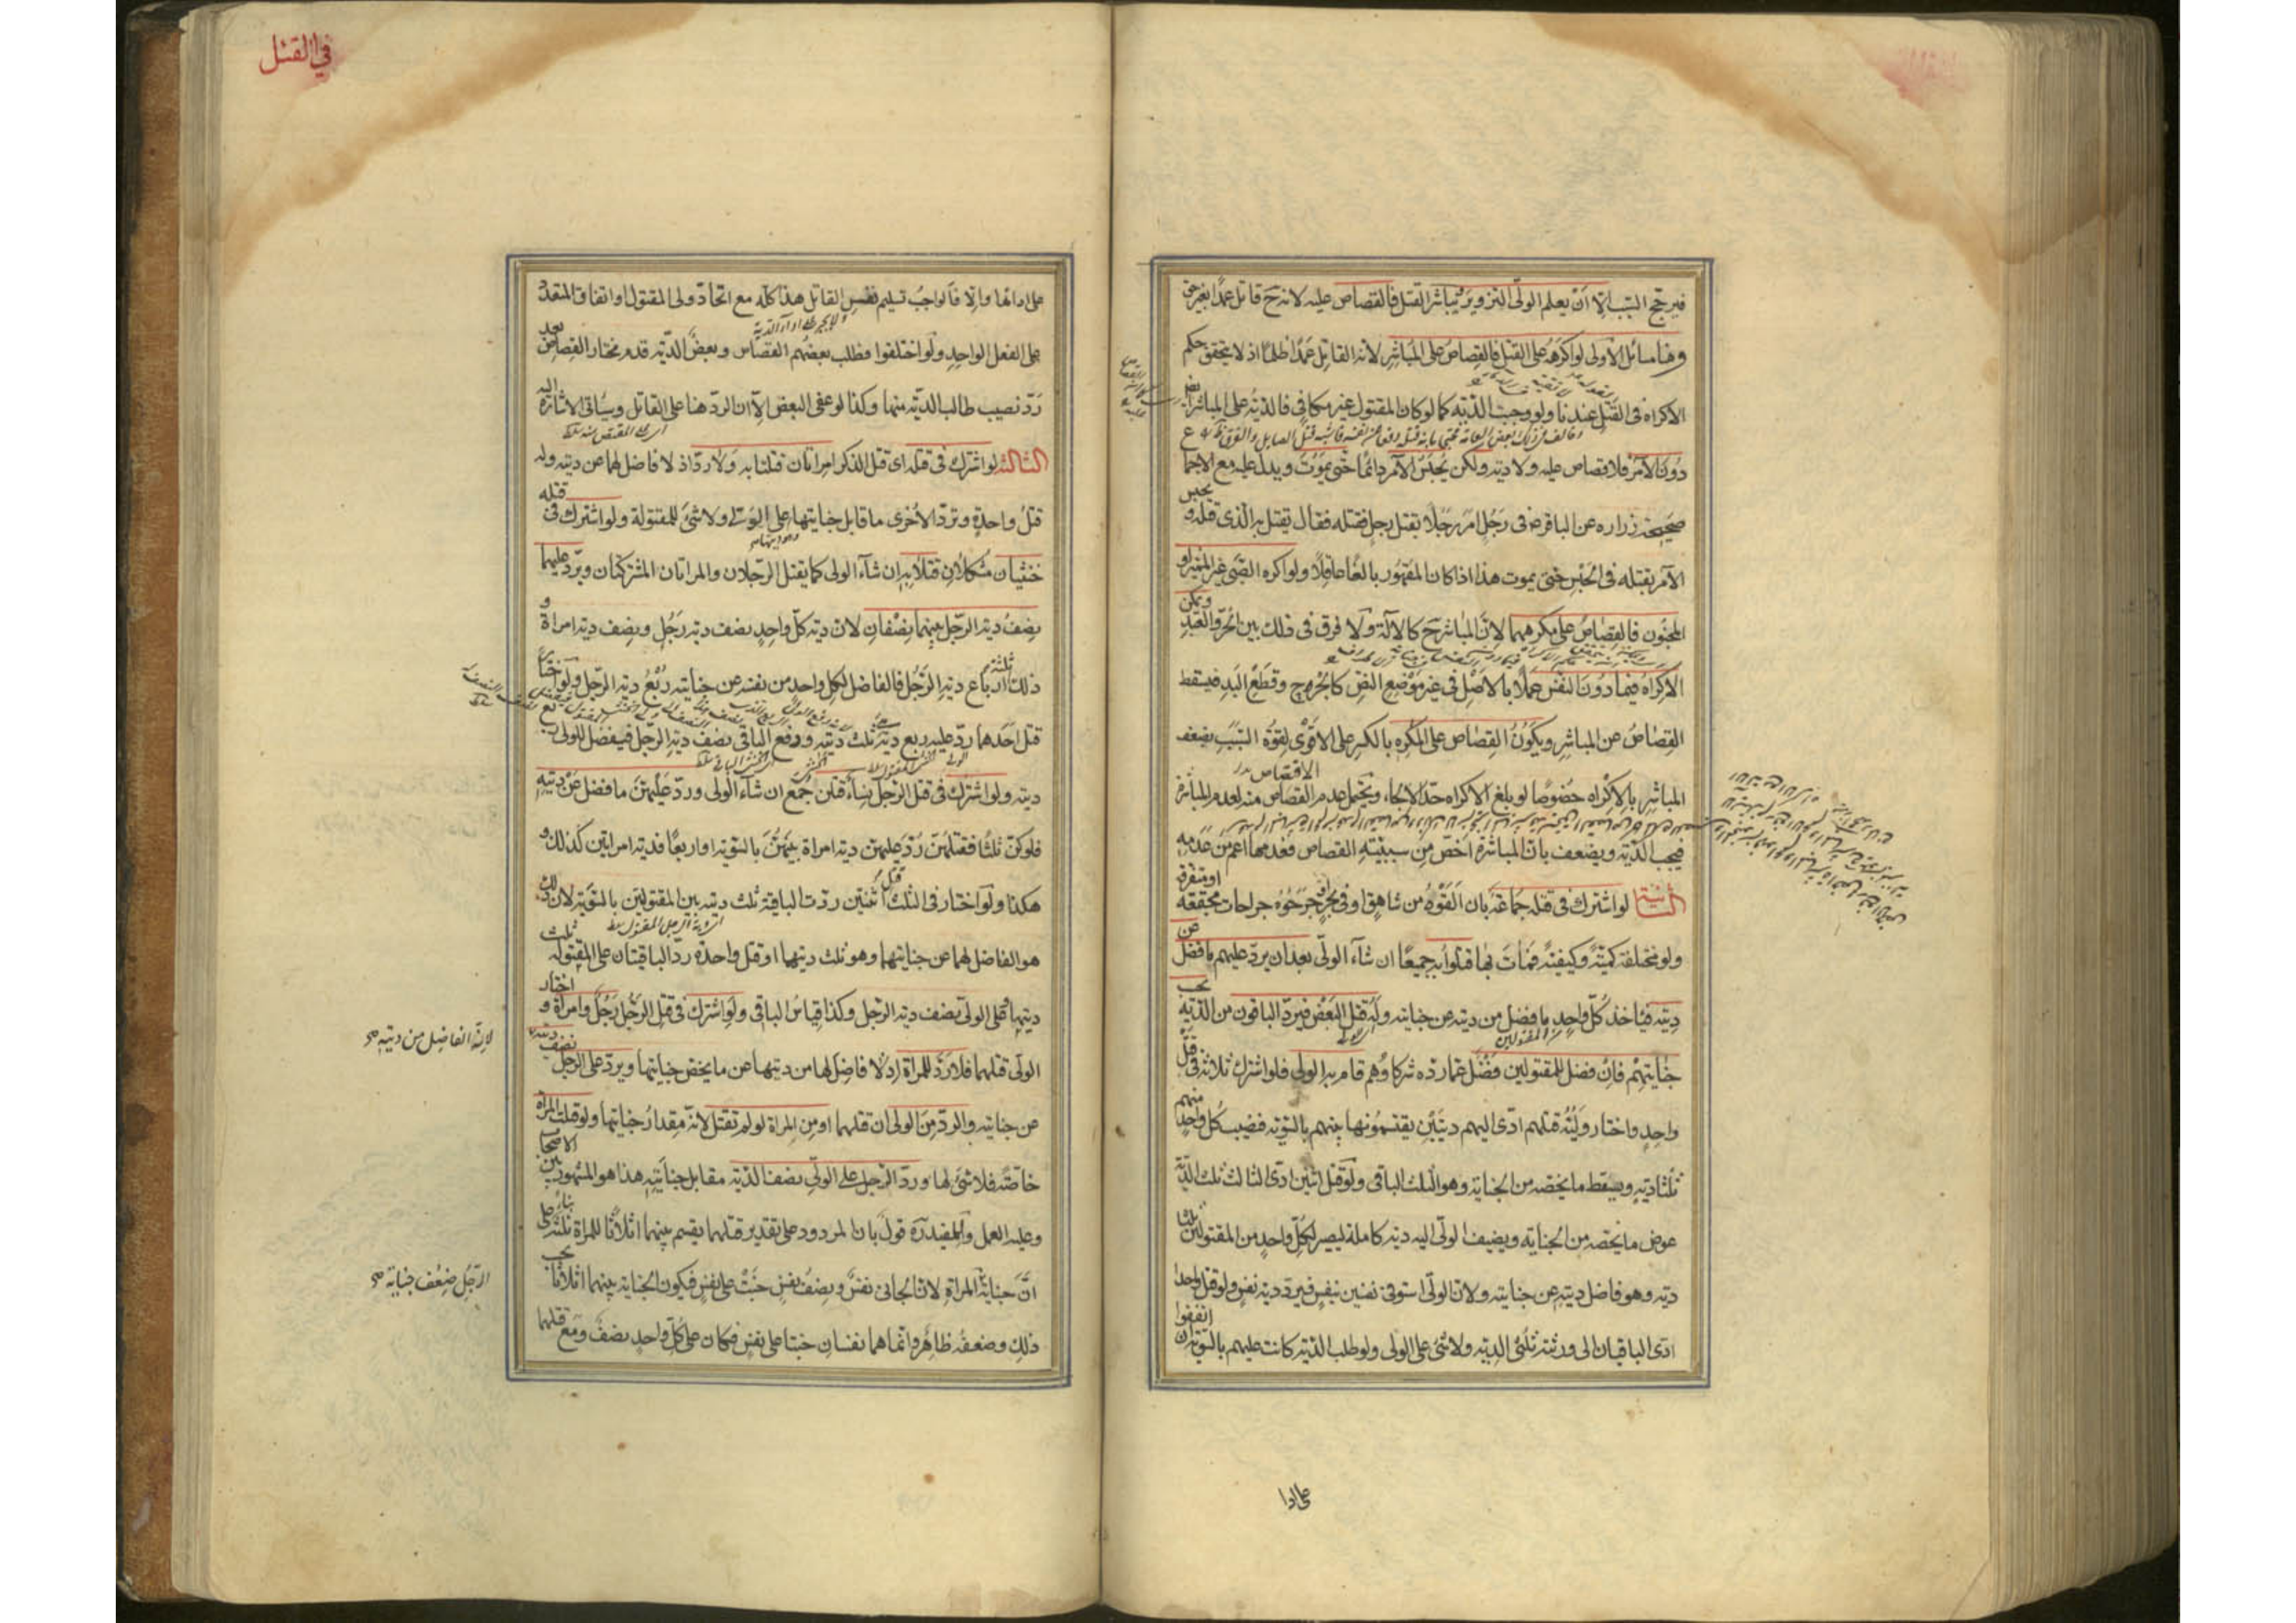 فيرجح السبب الا ان يعلم الولي التزوير ويباشر القتل فالقصاص عليه لانه ح قاتل عمدا بغير حق
وهنا مسائل الاولى لو اكرهه على القتل فالقصاص على المباشر لانه القاتل عمدا ظلما اذ لا يتحقق حكم
الاكراه في القتل عندنا ولو وجبت الدية كما لو كان المقتول غير مكافئ فالدية على المباشر ايضا
دون الآمر فلا قصاص عليه ولا دية ولكن يحبس الآمر دائما حتى يموت ويدل عليه مع الاجماع
صحيحة زرارة عن الباقر ع في رجل امر رجلا بقتل رجل فقتله فقال يقتل به الذي قتله و يحبس
الآمر بقتله في الحبس حتى يموت هذا اذا كان المقهور بالغا عاقلا ولو اكره الصبي غير المميز او
المجنون فالقصاص على مكرههما لان المباشر ح كالآلة ولا فرق في ذلك بين الحر والعبد ويمكن
الاكراه فيما دون النفس عملا بالاصل في غير موضع النص كالجروح وقطع اليد فيسقط
القصاص عن المباشر ويكون القصاص على المكره بالكسر على الاقوى لقوة السبب بضعف
المباشر بالاكراه خصوصا لو بلغ الاكراه حد الالجاء ويحتمل عدم الاقتصاص منه لعدم المباشرة
فيجب الدية ويضعف بان المباشرة اخص من سببية القصاص فعدمها اعم من عدمه
الثانية لو اشترك في قتله جماعة بان القوه من شاهق او في بحر او جرحوه جراحات مجتمعة او متفرقة
ولو مختلفة كمية وكيفية فمات بها قتلوا به جميعا ان شاء الولي بعد ان يرد عليهم ما فضل عن
ديته فياخذ كل واحد ما فضل من ديته عن جنايته وله قتل البعض فيرد الباقون من الدية بحسب
جنايتهم فان فضل للمقتولين فضل عما رده شركاؤهم قام به الولي فلو اشترك ثلاثة في قتل
واحد واختار وليه قتلهم ادى اليهم ديتين يقتسمونها بينهم بالسوية فنصيب كل واحد منهم
ثلثا دية ويسقط ما يخصه من الجناية وهو الثلث الباقي ولو قتل اثنين ادى الثالث ثلث الدية
عوض ما يخصه من الجناية ويضيف الولي اليه دية كاملة ليصير لكل واحد من المقتولين ثلثا
دية وهو فاضل ديته عن جنايته ولان الولي استوفى نفسين بنفس فيرد دية نفس ولو قتل واحدا
ادى الباقيان الى ورثته ثلثي الدية ولا شئ على الولي ولو طلب الدية كانت عليهم بالسوية ان اتفقوا
على ادا
في القتل
على ادائها والا فالواجب تسليم نفس القاتل هذا كله مع اتحاد ولي المقتول او اتفاق المتعدد
على الفعل الواحد ولو اختلفوا فطلب بعضهم القصاص وبعض الدية قدم مختار القصاص بعد
رد نصيب طالب الدية منها وكذا لو عفى البعض الا ان الرد هنا على القاتل وسياتي الاشارة اليه
الثالثة لو اشترك في قتله اى قتل الذكر امراتان قتلتا به ولا رد اذ لا فاضل لهما عن ديته وله
قتل واحدة وترد الاخرى ما قابل جنايتها على الولي ولا شئ للمقتولة ولو اشترك في قتله
خنثيان مشكلان قتلا به ان شاء الولي كما يقتل الرجلان والمراتان المشتركتان ويرد عليهما
نصف دية الرجل بينهما نصفان لان دية كل واحد نصف دية رجل ونصف دية امراة و
ذلك ثلثة ارباع دية الرجل فالفاضل لكل واحد من نفسه عن جنايته ربع دية الرجل ولو اختار
قتل احدهما رد عليه ربع دية هو ثلث ديته ودفع الباقي نصف دية الرجل فيفضل للولي ربع
ديته ولو اشترك في قتل الرجل نساء قتلن جمع ان شاء الولي ورد عليهن ما فضل عن ديته
فلو كن ثلثا فقتلهن رد عليهن دية امراة بينهن بالسوية او اربعا فدية امراتين كذلك و
هكذا ولو اختار في الثلث قتل اثنتين ردت الباقية ثلث ديته بين المقتولتين بالسوية لان ذلك
هو الفاضل لهما عن جنايتهما وهو ثلث ديتهما او قتل واحدة رد الباقيتان على المقتولة ثلث
ديتها وعلى الولي نصف دية الرجل وكذا قياس الباقي ولو اشترك في قتل الرجل رجل وامراة و اختار
الولي قتلهما فلا رد للمراة اذ لا فاضل لها من ديتها عن ما يخص جنايتها ويرد على الرجل نصف ديته
لانه الفاضل من ديته صح
عن جنايته والرد من الولي ان قتلهما او من المراة لو لم تقتل لانه مقدار جنايتها ولو قتلت المراة
خاصة فلا شئ لها ورد الرجل على الولي نصف الدية مقابل جنايته هذا هو المشهور بين الاصحاب
وعليه العمل وللمفيد ره قول بان المردود على تقدير قتلهما يقسم بينهما اثلاثا للمراة ثلثه بناء على
ان جناية الرجل ضعف جناية صح
المراة لان الجاني نفس ونصف نفس جنت على نفس فيكون الجناية بينهما اثلاثا بحسب
ذلك وضعفه ظاهر وانما هما نفسان جنتا على نفس فكان على كل واحد نصف ومع قتلهما